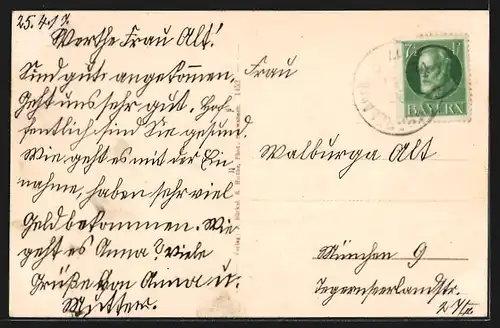 25.4.17.
Werthe Frau Alt!
Sind gut angekommen.
Geht uns sehr gut. Hof-
fentlich sind Sie gesund.
Wie geht es mit der Ein
nahme, haben sehr viel
Geld bekommen. Wie
geht es Anna? Viele
Grüße von Anna u.
Mutter.
Frau
Walburga Alt
München 9
Tegernseerlandstr.
7½
BAYERN